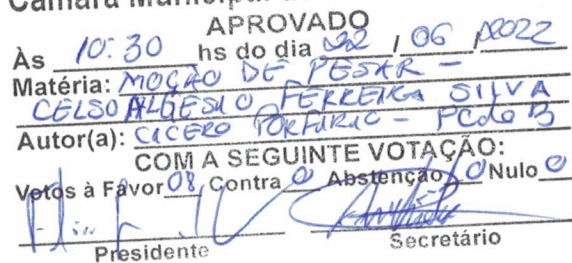 Câmara Municipal
APROVADO
Às 10:30 hs do dia 22 / 06 / 2022
Matéria: MOÇÃO DE PESAR -
CELSO ALGESIO FERREIRA SILVA
Autor(a): CICERO PORFIRIO - PCdoB
COM A SEGUINTE VOTAÇÃO:
Votos à Favor 08 Contra 0 Abstenção 0 Nulo 0
Presidente Secretário